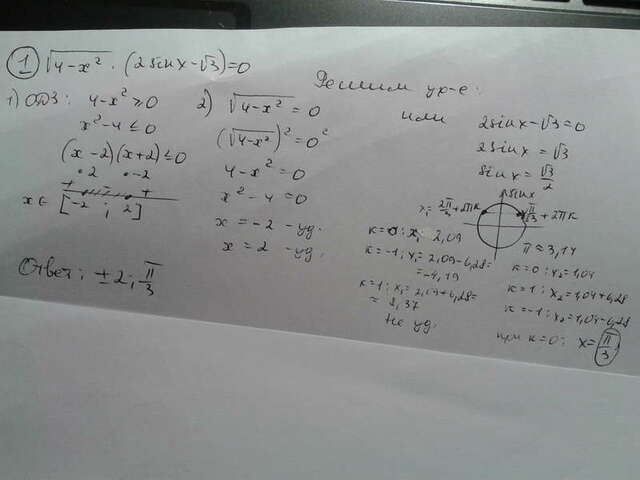 1 √4-x² · (2sinx-√3)=0
Решим ур-е:
1) ОДЗ: 4-x²≥0
x²-4≤0
(x-2)(x+2)≤0
•2 •-2
+ - +
x∈ [-2 ; 2]
2) √4-x² = 0
(√4-x²)² = 0²
4-x² = 0
x²-4=0
x = -2 - уд.
x = 2 - уд.
или 2sinx-√3=0
2sinx = √3
sinx = √3/2
sinx
x₁ = 2π/3 + 2πк
π/3 + 2πк
π≈3,14
к=0: x₁ = 2,09
к=-1: x₁=2,09-6,28=
=-4,19
к=1: x₁=2,09+6,28=
≈ 8,37
не уд.
к=0: x₂=1,04
к=1: x₂=1,04+6,28
к=-1: x₂=1,04-6,28
при к=0: x=π/3
Ответ: ±2; π/3